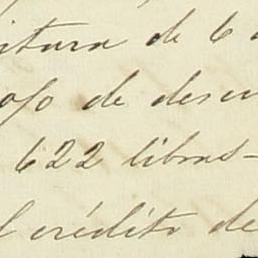 itura de 6 d
o/o de descu
622 libras-
l crédito de